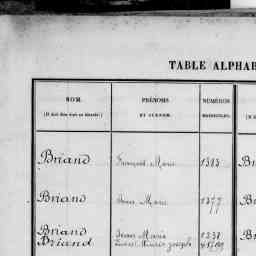 TABLE ALPHAB
NOM. PRÉNOMS NUMÉROS
(Il doit être écrit en bâtarde.) ET SURNOM. MATRICULES.
Briand François Marie 1383 Br
Briand Marie 1377 Br
Briand Jean Marie 1238 Br
Briand Marie Joseph